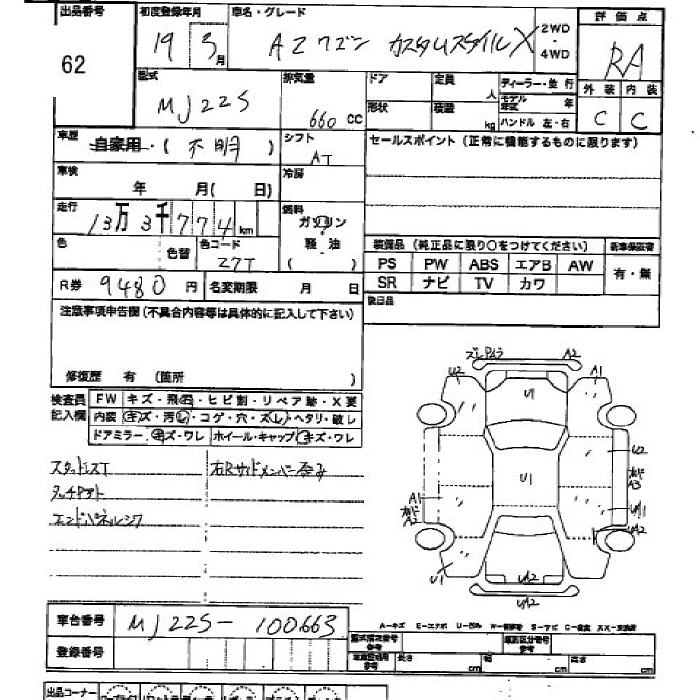 出品番号 初度登録年月 車名・グレード 評価点
62 19 3月 AZワゴン カスタムスタイルX 2WD・4WD RA
型式 排気量 ドア 定員 人 ディーラー・並行 外装 内装
MJ22S 660 cc 形状 積載 kg モデル年式 年 C C
ハンドル 左・右
車歴 自家用・(不明) シフト AT セールスポイント(正常に機能するものに限ります)
車検 年 月( 日) 冷房
走行 13万3千774km 燃料 ガソリン 軽油 ( )
色 色替 色コード Z7T 装備品(純正品に限り○をつけてください) 新車保証書
PS PW ABS エアB AW 有・無
R券 9480円 名変期限 月 日 SR ナビ TV カワ
注意事項申告欄(不具合内容等は具体的に記入して下さい) 後日品
修復歴 有(箇所 )
検査員記入欄 FW キズ・飛石・ヒビ割・リペア跡・X要
内装 キズ・汚レ・コゲ・穴・スレ・ヘタリ・破レ
ドアミラー キズ・ワレ ホイール・キャップ キズ・ワレ
スタッドレスT 右Rサイドメンバー歪み
タッチアト
エンドパネルシワ
ズレ A2
U2 A1
U1
U2
U1
A1 A3
A2 UA2
U1 UA2
UA2
車台番号 MJ22S-100663
A-キズ E-エクボ U-凹み S-サビ C-腐食
登録番号 型式指定番号 参考 類別区分番号 参考
参考 長さ cm 幅 cm 高さ cm
出品コーナー